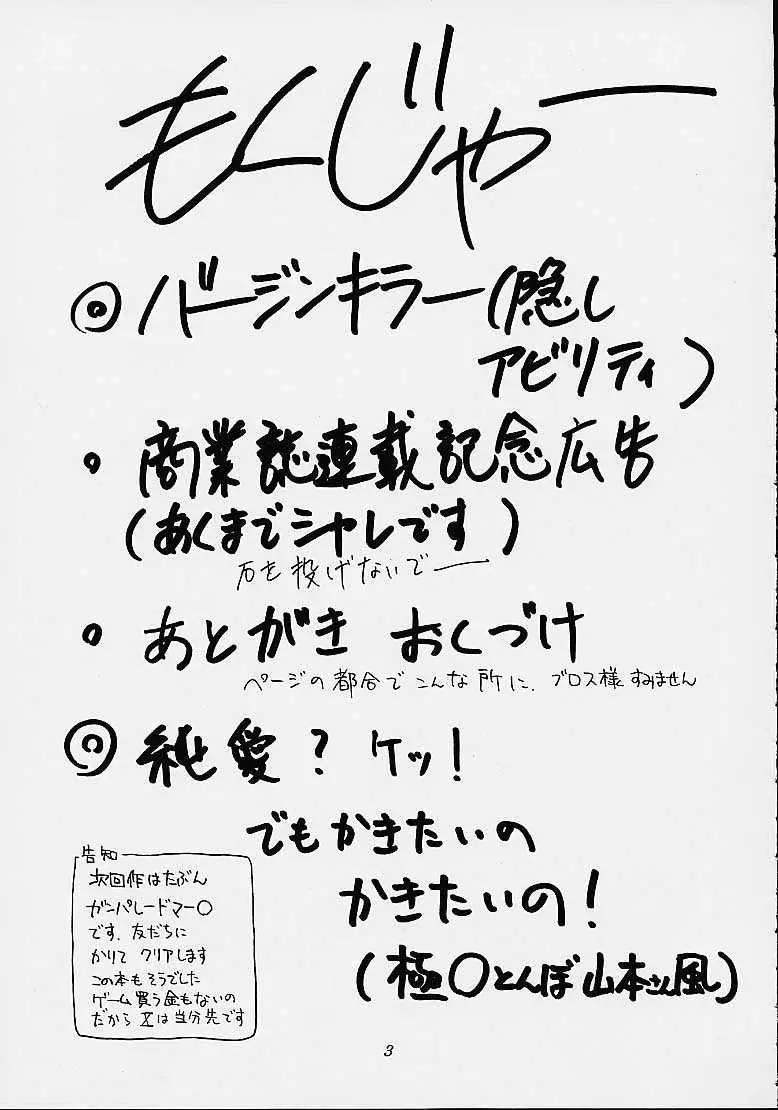 もくじゃー
◎バージンキラー(隠し
アビリティ)
・商業誌連載記念広告
(あくまでシャレです)
石を投げないでー
・あとがき おくづけ
ページの都合でこんな所に、ブロス様すみません
◎純愛?ケッ!
でもかきたいの
かきたいの!
(極〇とんぼ山本さん風し)
告知
次回作はたぶん
ガンパレードマー〇
です。友だちに
かりて クリアします
この本もそうでした
ゲーム買う金もないの
だから Xは当分先です
3